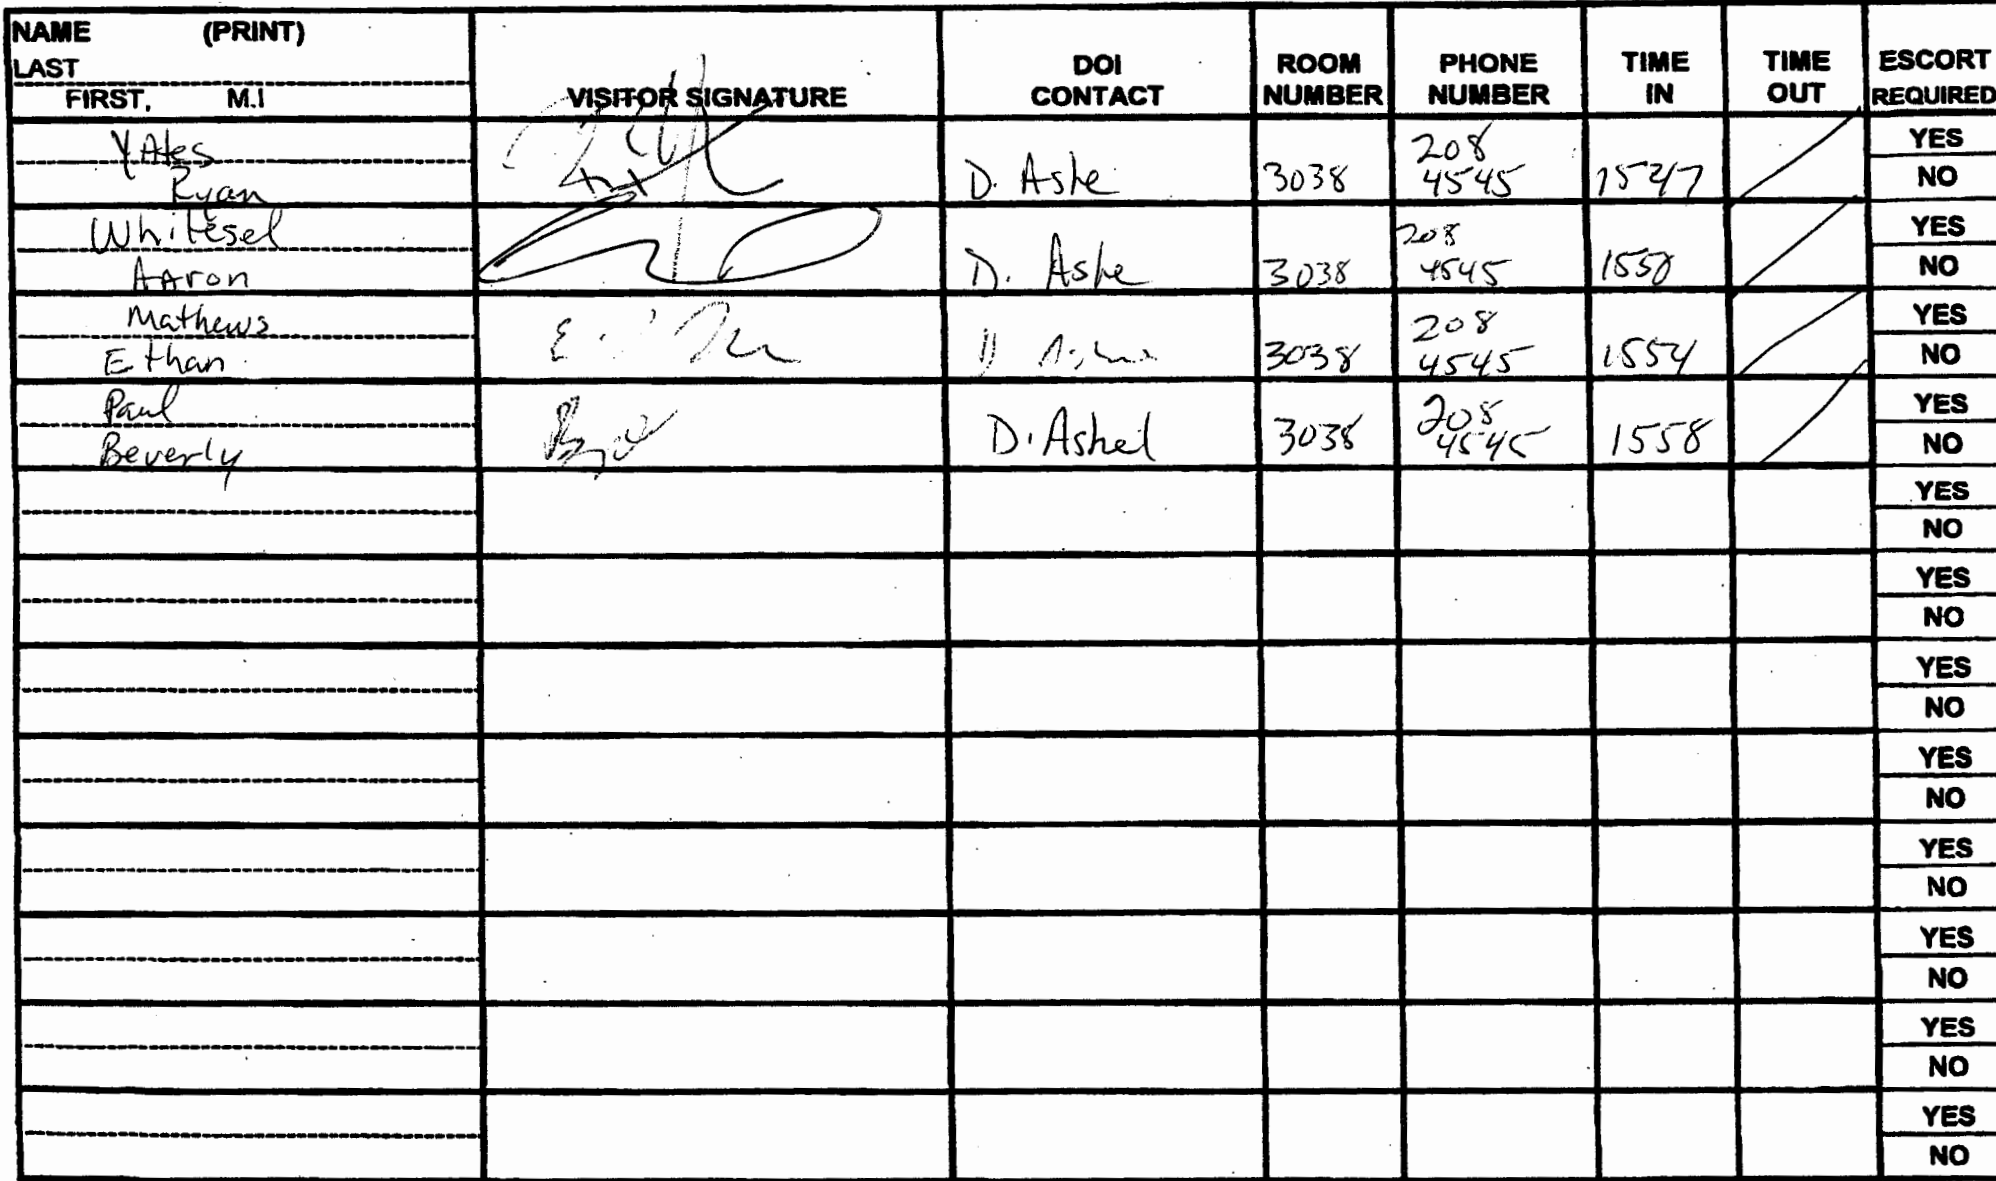 NAME (PRINT)
LAST
FIRST, M.I
VISITOR SIGNATURE
DOI
CONTACT
ROOM
NUMBER
PHONE
NUMBER
TIME
IN
TIME
OUT
ESCORT
REQUIRED
YAtes
Ryan
D. Ashe
3038
208
4545
YES
NO
Whitesel
AAron
D. Ashe
3038
208
4545
1550
YES
NO
Mathews
Ethan
3038
208
4545
1554
YES
NO
Paul
Beverly
D. Ashel
3038
208
4545
1558
YES
NO
YES
NO
YES
NO
YES
NO
YES
NO
YES
NO
YES
NO
YES
NO
YES
NO